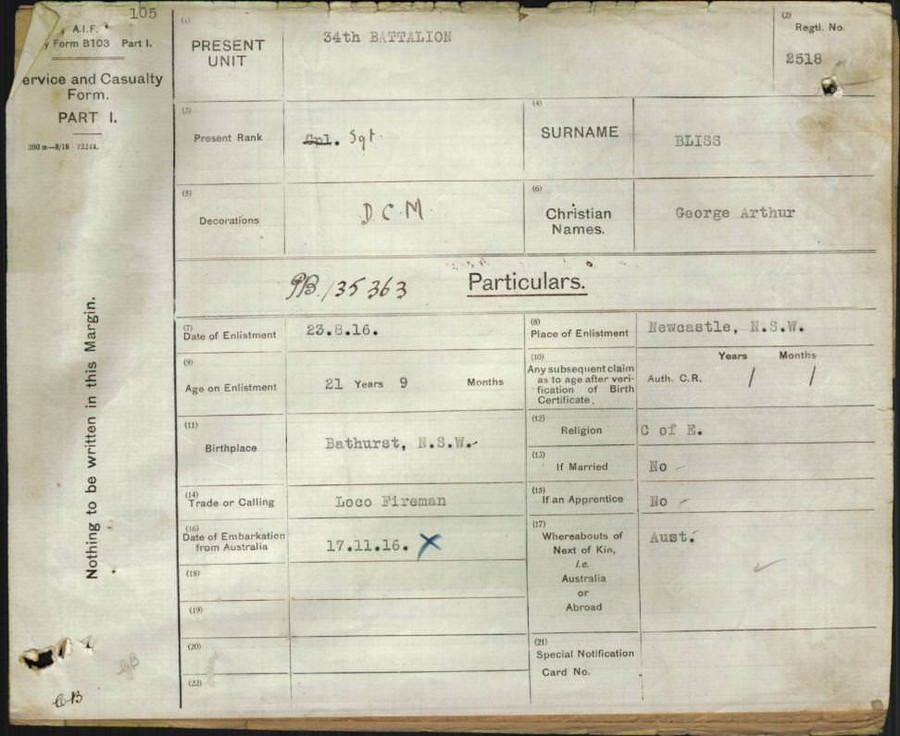 105
A.I.F.
y Form B103 Part I.
ervice and Casualty
Form.
PART I.
200 m—8/16 · 12244.
Nothing to be written in this Margin.
(1)
PRESENT
UNIT
34th BATTALION
(2)
Regtl. No.
2518
(3)
Present Rank
Cpl. Sgt.
(4)
SURNAME
BLISS
(5)
Decorations
D.C.M
(6)
Christian
Names.
George Arthur
PB/35363
Particulars.
(7)
Date of Enlistment
23.8.16.
(8)
Place of Enlistment
Newcastle, N.S.W.
(9)
Age on Enlistment
21 Years 9 Months
(10)
Any subsequent claim
as to age after veri-
fication of Birth
Certificate.
Years Months
Auth. C.R. / /
(11)
Birthplace
Bathurst, N.S.W.
(12)
Religion
C of E.
(13)
If Married
No
(14)
Trade or Calling
Loco Fireman
(15)
If an Apprentice
No
(16)
Date of Embarkation
from Australia
17.11.16. X
(17)
Whereabouts of
Next of Kin,
i.e.
Australia
or
Abroad
Aust.
(18)
(19)
(20)
(21)
Special Notification
Card No.
(22)